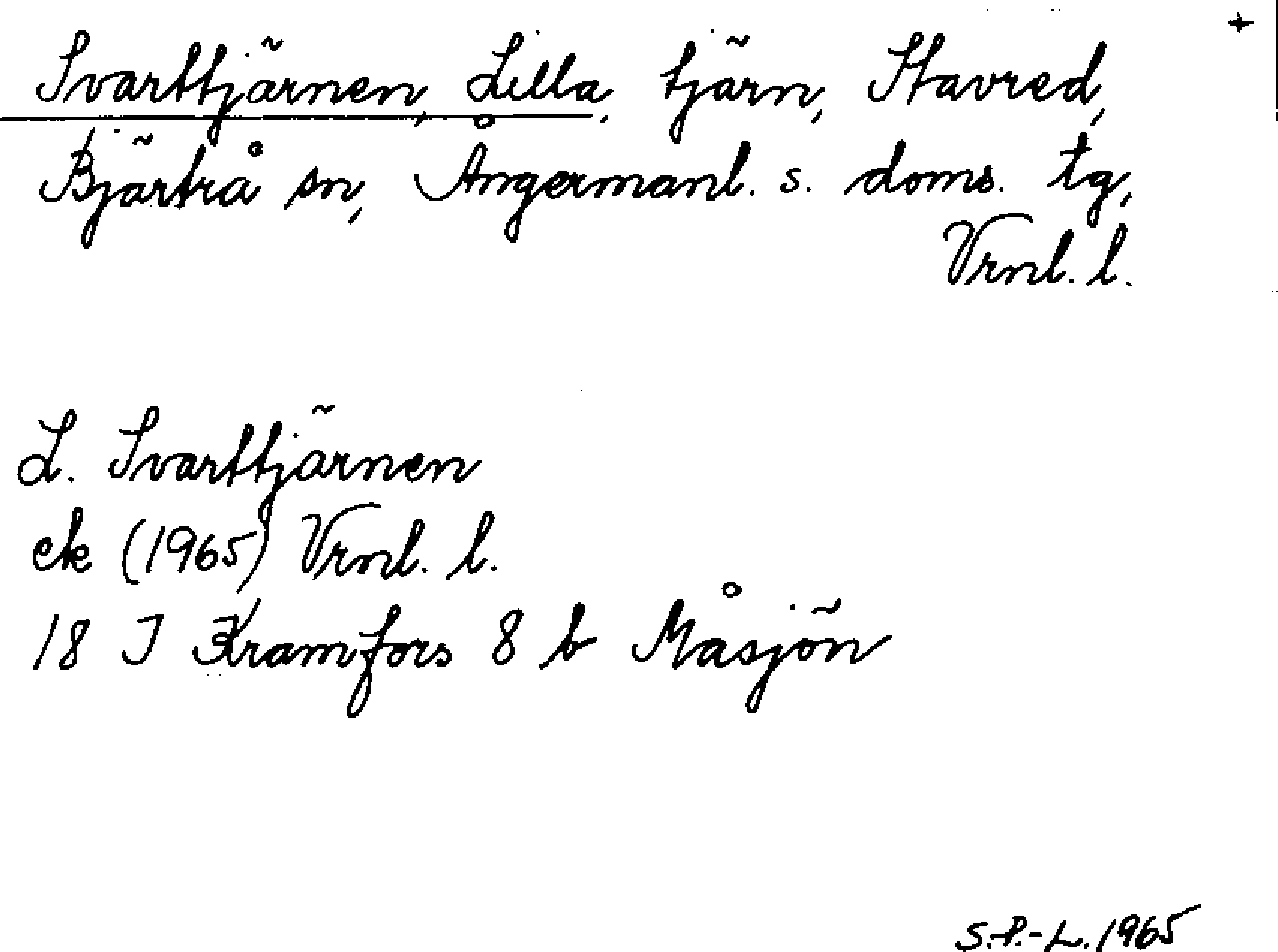 +
Svarttjärnen, Lilla, tjärn, Stavred,
Bjärtrå sn, Ångermanl. s. doms. tg,
Vrnl. l.
L. Svarttjärnen
ek (1965) Vrnl. l.
18 I Kramfors 8 b Måsjön
S.P.-L. 1965